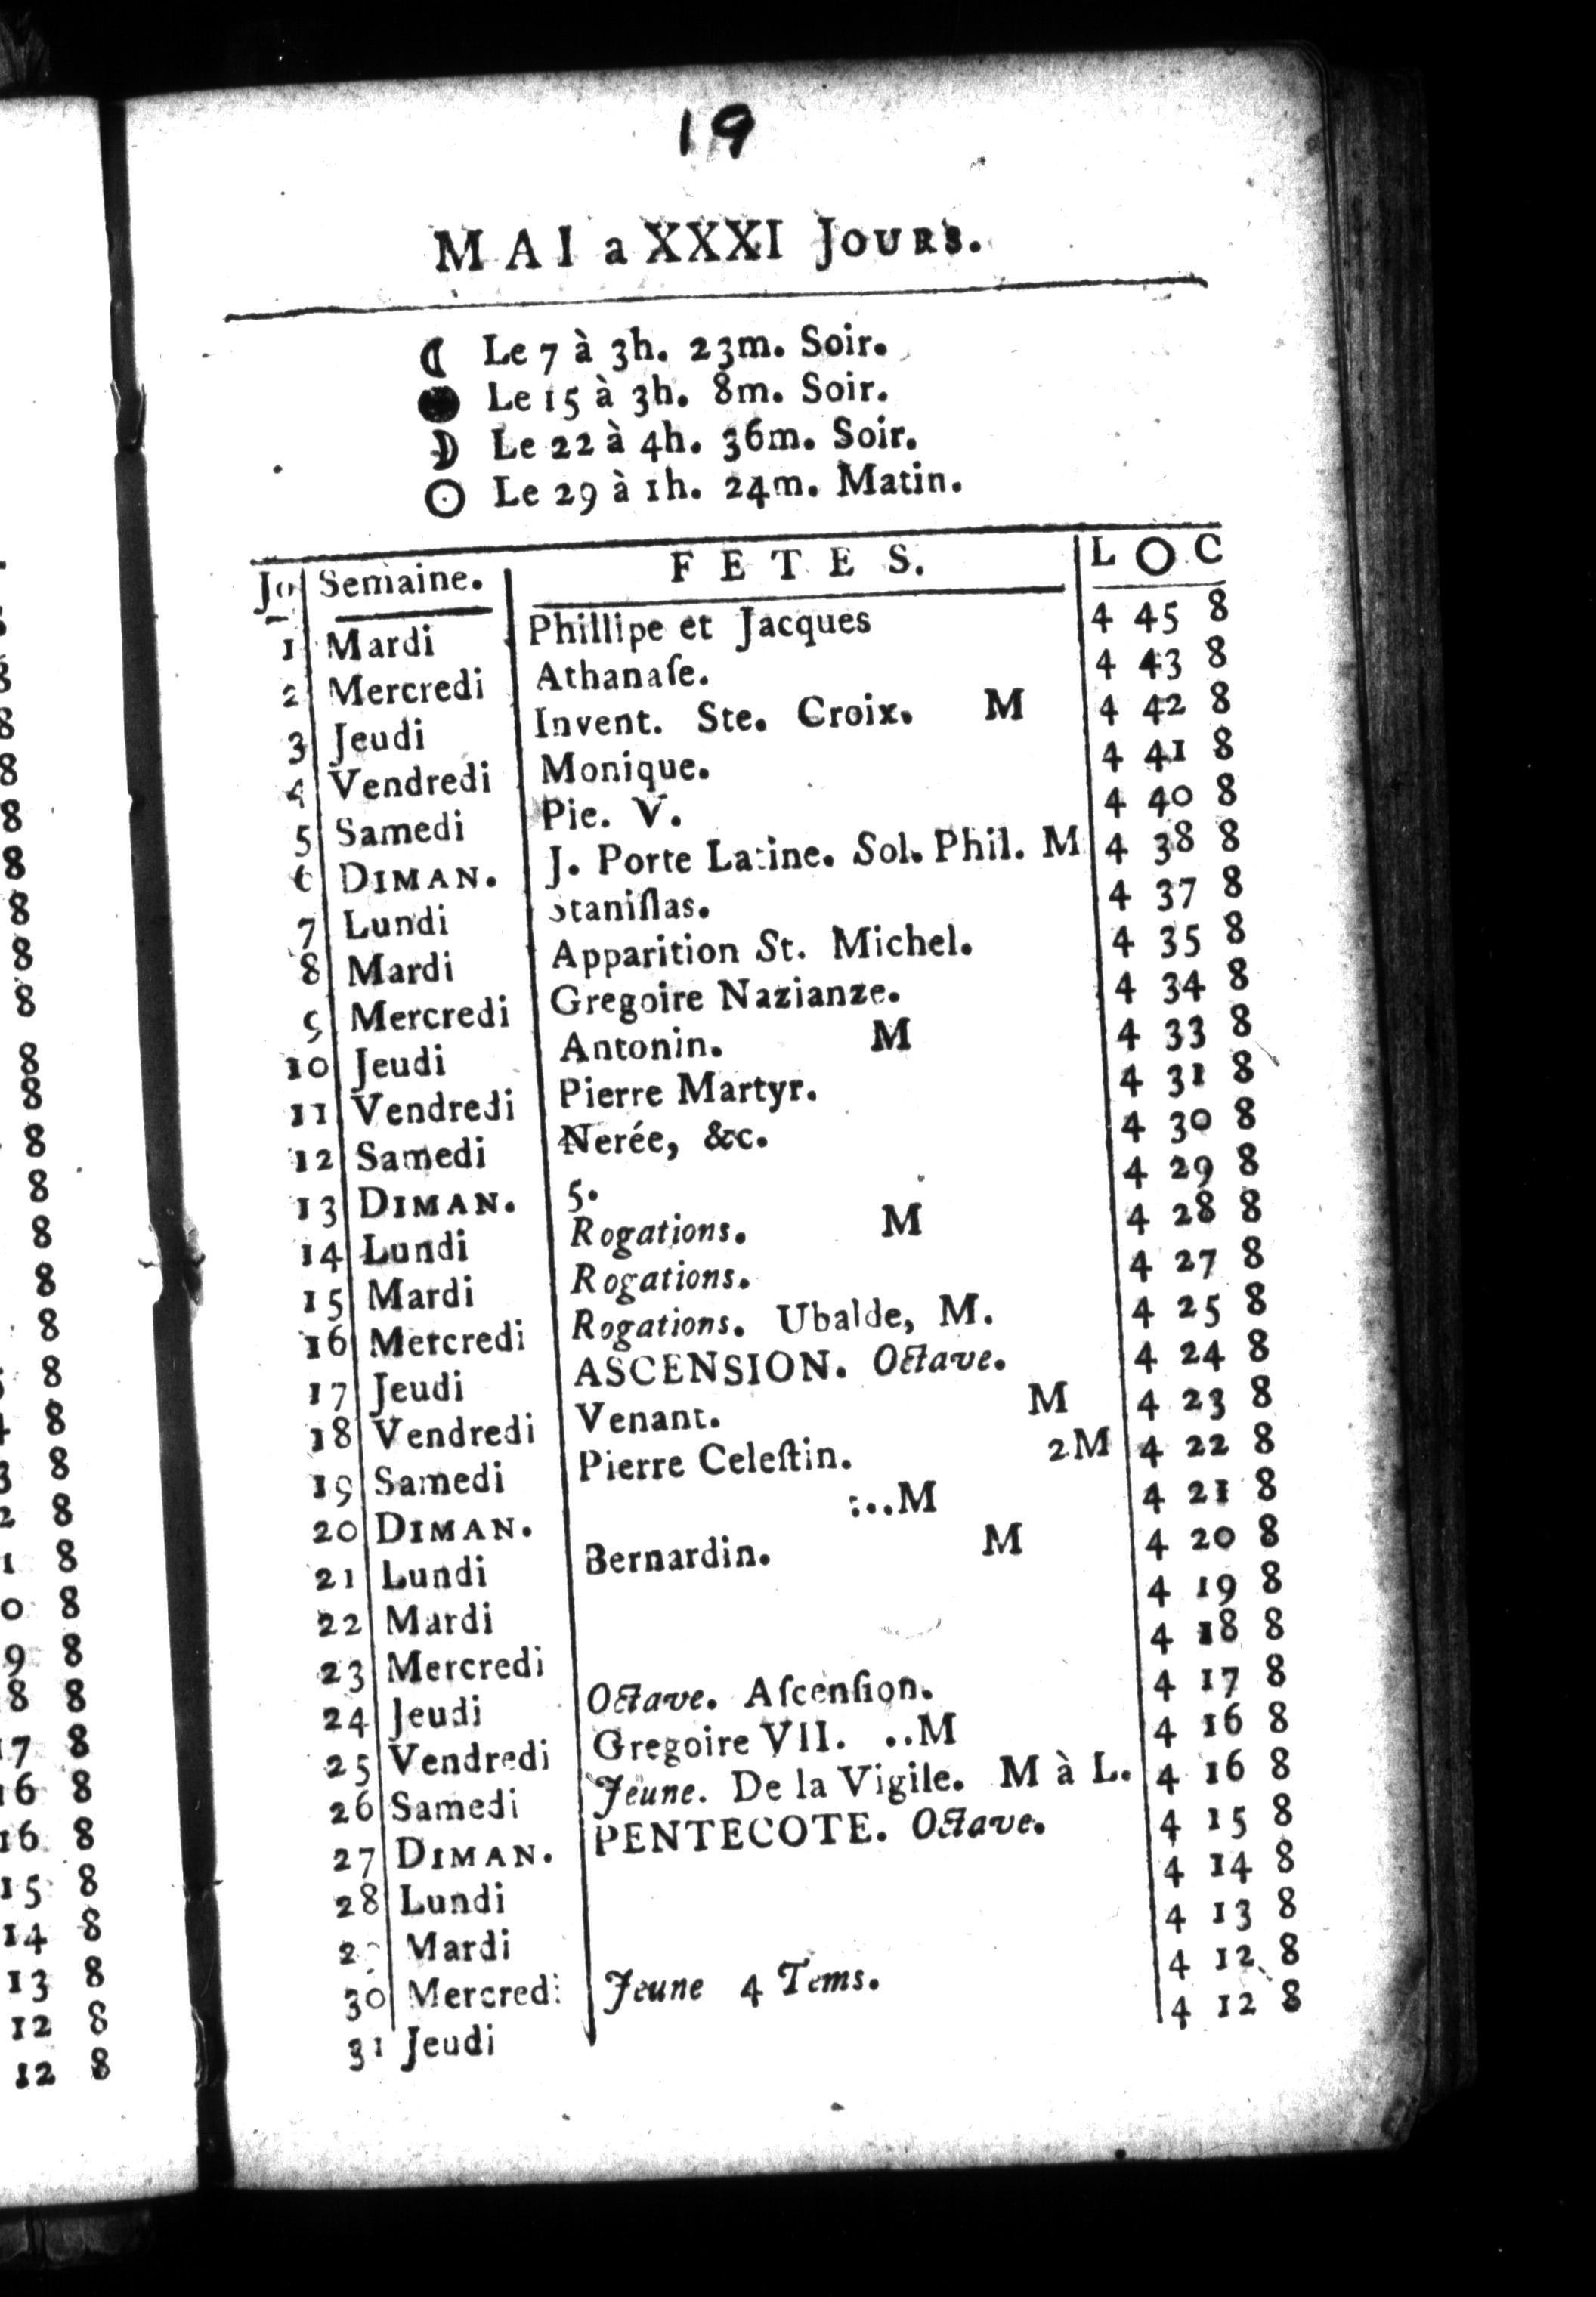 19
MAI a XXXI JOURS.
☾ Le 7 à 3h. 23m. Soir.
● Le 15 à 3h. 8m. Soir.
☽ Le 22 à 4h. 36m. Soir.
☉ Le 29 à 1h. 24m. Matin.
Jo Semaine. FETES. L O C
1 Mardi Phillipe et Jacques 4 45 8
2 Mercredi Athanaſe. 4 43 8
3 Jeudi Invent. Ste. Croix. M 4 42 8
4 Vendredi Monique. 4 41 8
5 Samedi Pie. V. 4 40 8
6 DIMAN. J. Porte Latine. Sol. Phil. M 4 38 8
7 Lundi Staniſlas. 4 37 8
8 Mardi Apparition St. Michel. 4 35 8
9 Mercredi Gregoire Nazianze. 4 34 8
10 Jeudi Antonin. M 4 33 8
11 Vendredi Pierre Martyr. 4 31 8
12 Samedi Nerée, &c. 4 30 8
13 DIMAN. 5. 4 29 8
14 Lundi Rogations. M 4 28 8
15 Mardi Rogations. 4 27 8
16 Mercredi Rogations. Ubalde, M. 4 25 8
17 Jeudi ASCENSION. Octave. 4 24 8
18 Vendredi Venant. M 4 23 8
19 Samedi Pierre Celeſtin. 2M 4 22 8
20 DIMAN. :..M 4 21 8
21 Lundi Bernardin. M 4 20 8
22 Mardi 4 19 8
23 Mercredi 4 18 8
24 Jeudi Octave. Aſcenſion. 4 17 8
25 Vendredi Gregoire VII. ..M 4 16 8
26 Samedi Jeune. De la Vigile. M à L. 4 16 8
27 DIMAN. PENTECOTE. Octave. 4 15 8
28 Lundi 4 14 8
29 Mardi 4 13 8
30 Mercredi Jeune 4 Tems. 4 12 8
31 Jeudi 4 12 8